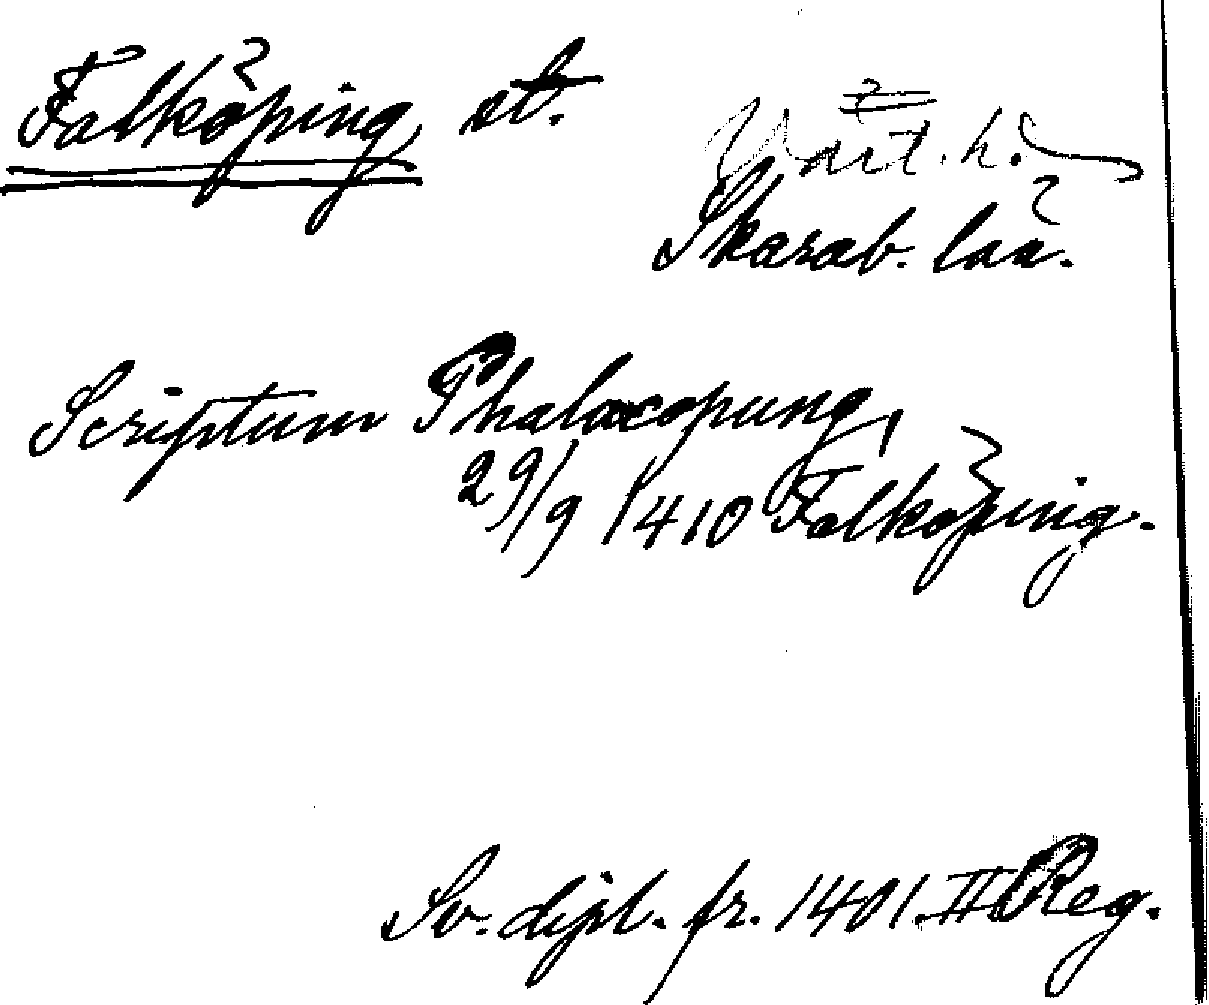 Falköping, st.
Vart. h.
Skarab. län.
Scriptum Phalacopung,
29/9 1410 Falköping.
Sv. dipl. fr. 1401. II Reg.